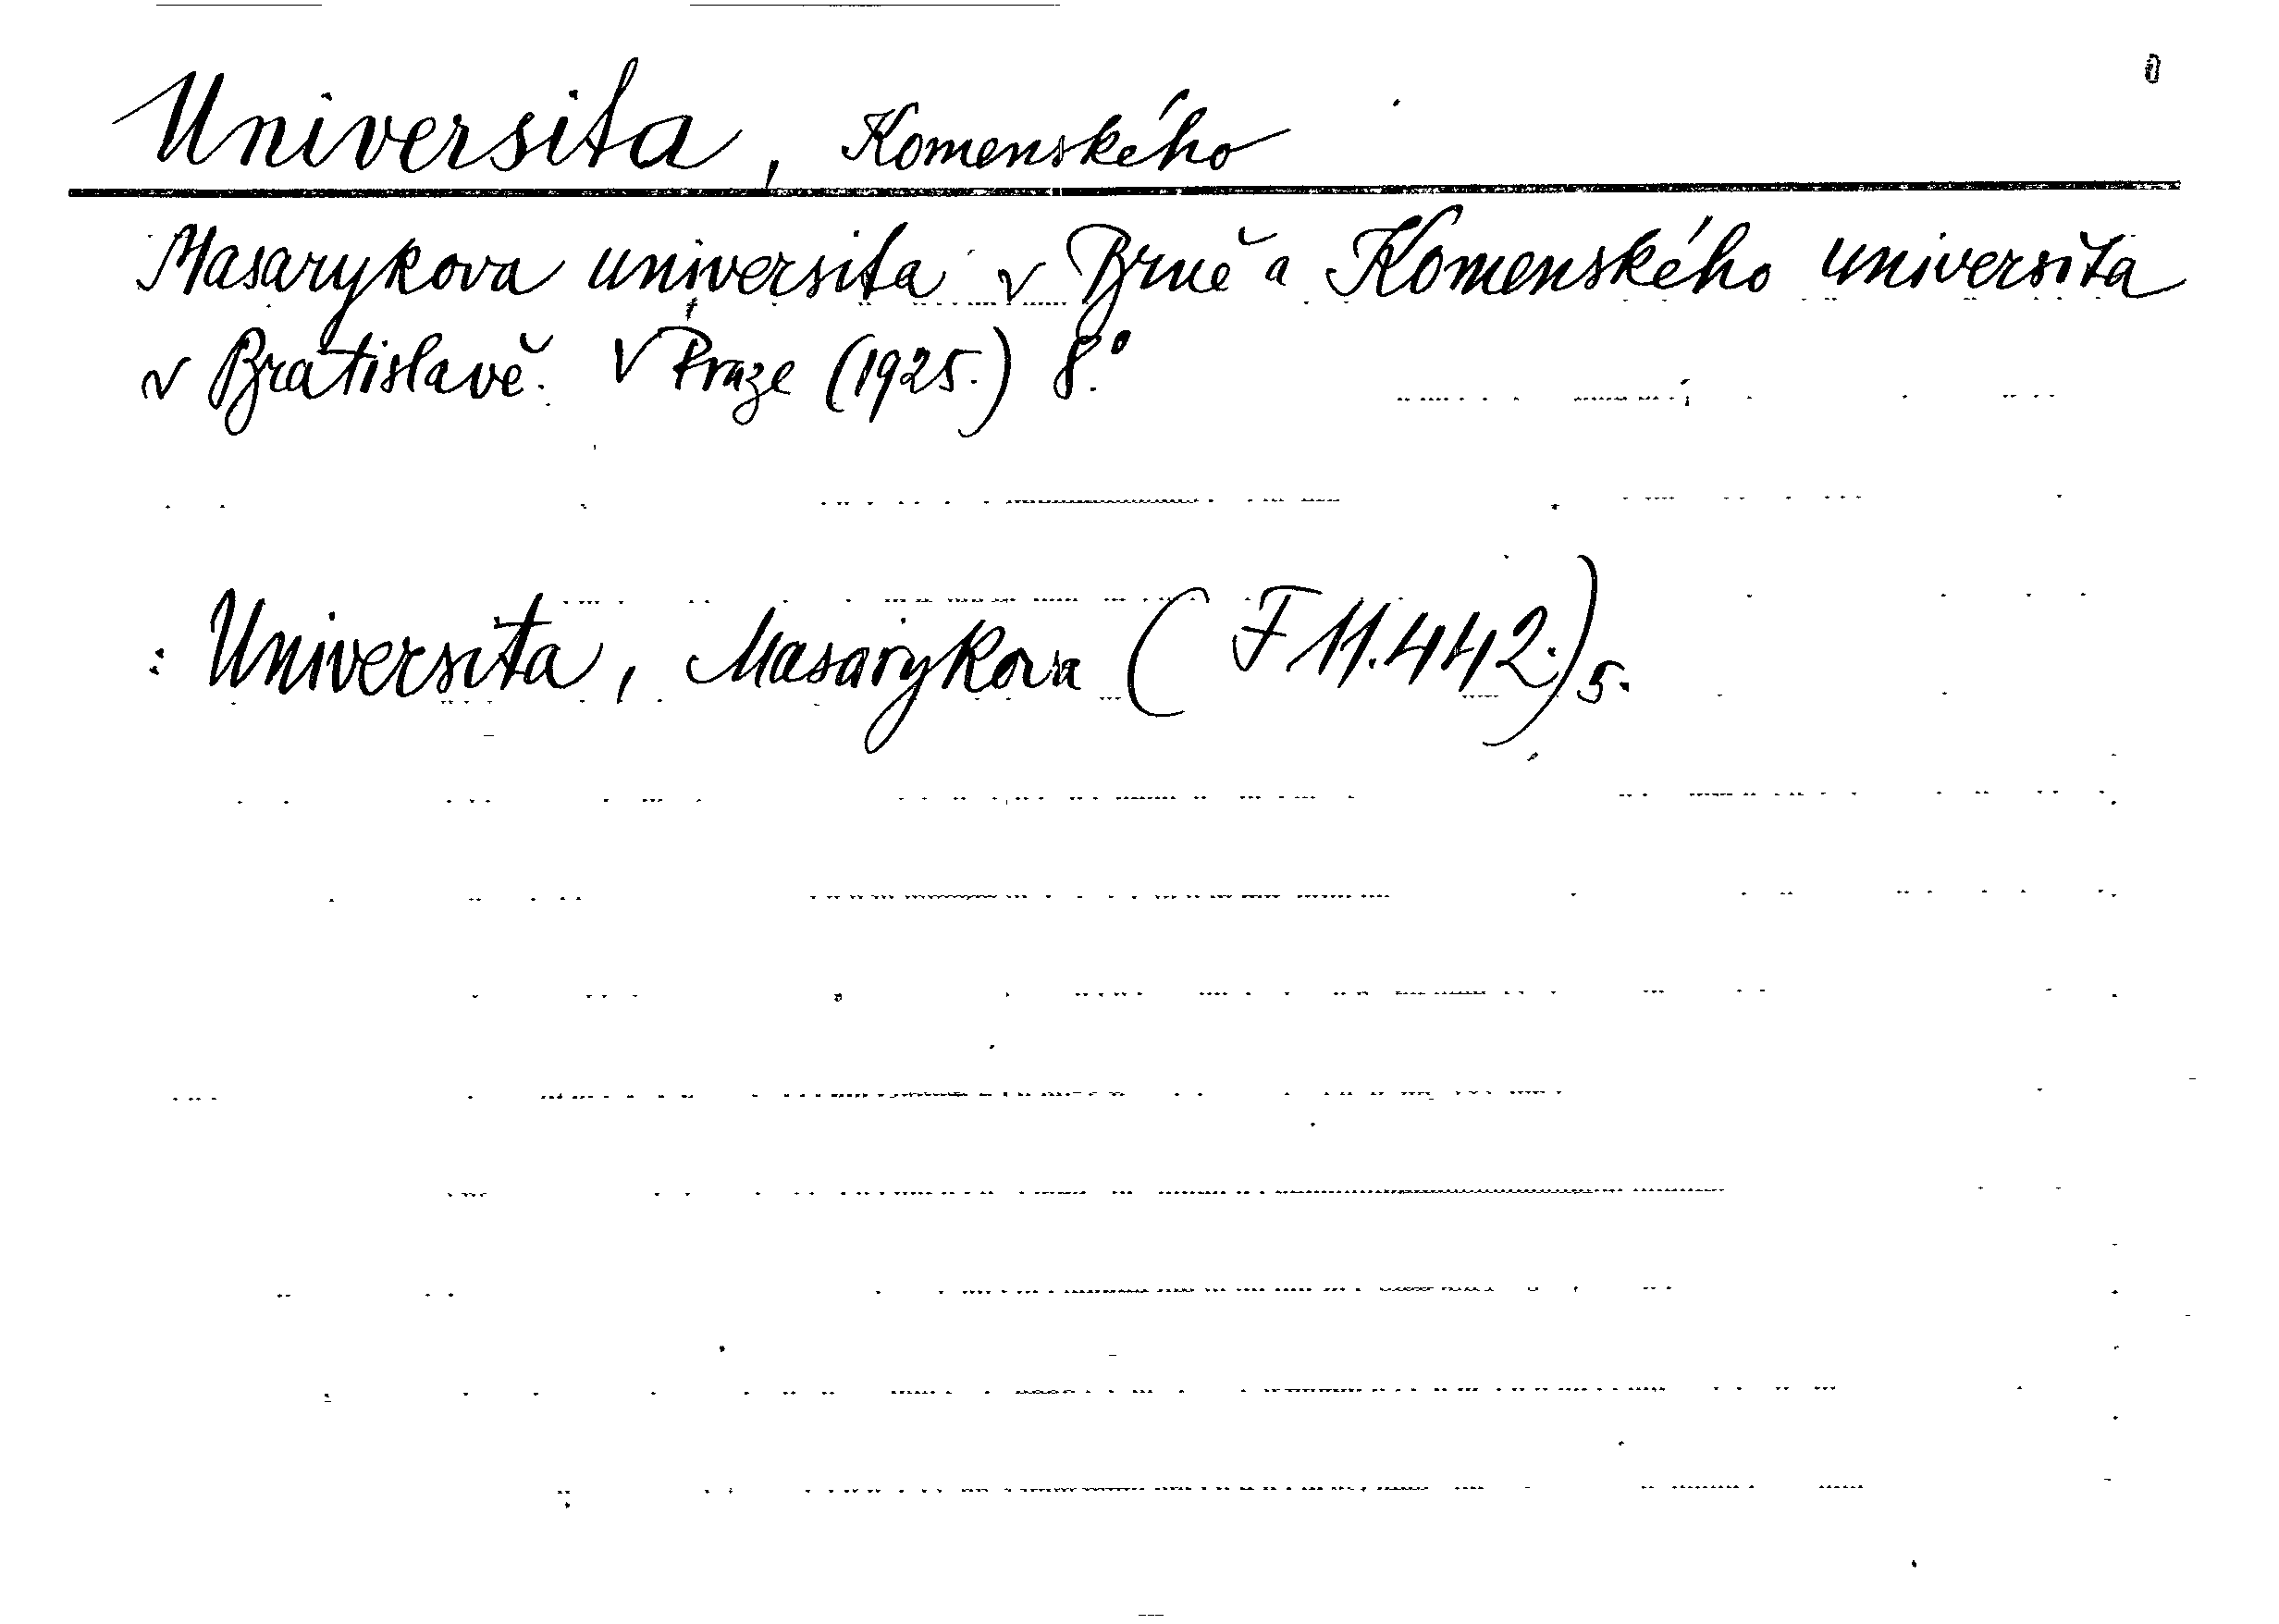 Universita, Komenského
Masarykova universita v Brně a Komenského universita
v Bratislavě. V Praze (1925.) 8.°
: Universita, Masarykova (F 11.442.) 5.